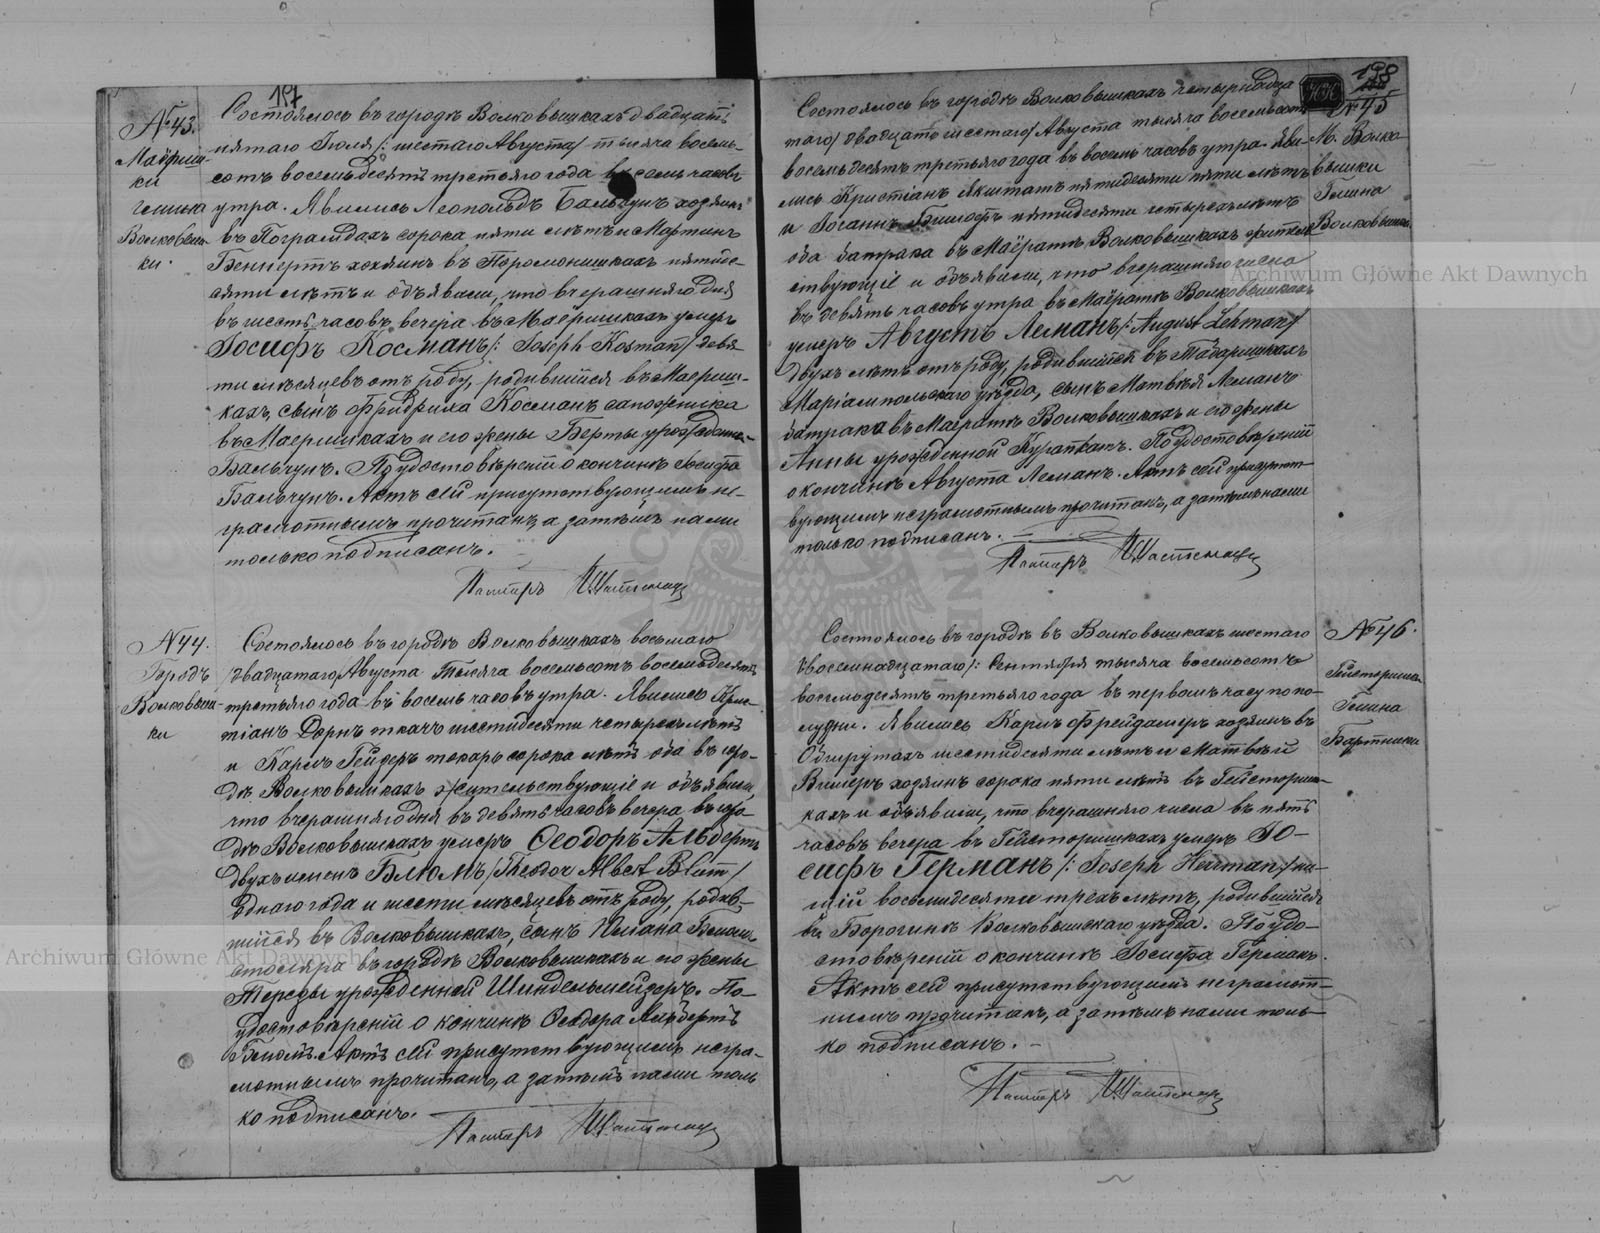 197
№ 43.
Маёриш-
ки
гмина
Волковыш-
ки.
Состоялось въ городѣ Волковышкахъ двадцать
пятаго Іюля /: шестаго Августа / тысяча восемь-
сотъ восемьдесятъ третьяго года въ семь часовъ
утра. Явились Леопольдъ Бальчунъ хозяинъ
въ Пограмдахъ сорока пяти лѣтъ и Мартинъ
Беннертъ хозяинъ въ Поромонишкахъ пятиде-
сяти лѣтъ и объявили, что вчерашняго дня
въ шесть часовъ вечера въ Маёришкахъ умеръ
Іосифъ Косманъ /: Joseph Kosman / девя-
ти мѣсяцевъ отъ роду, родившійся въ Маериш-
кахъ, сынъ Фридриха Косманъ сапожника
въ Маеришкахъ и его жены Берты урожденной
Бальчунъ. По удостовѣреніи о кончинѣ Іосифа
Бальчунъ. Актъ сей присутствующимъ не-
грамотнымъ прочитанъ, а затѣмъ нами
только подписанъ.
Пасторъ
№ 44.
Городъ
Волковыш-
ки
Состоялось въ городѣ Волковышкахъ восьмаго
/двадцатаго/ Августа тысяча восемьсотъ восемьдесятъ
третьяго года въ восемь часовъ утра. Явились Крис-
тіанъ Дорнъ ткачъ шестидесяти четырехъ лѣтъ
и Карлъ Гейдеръ токарь сорока лѣтъ оба въ горо-
дѣ Волковышкахъ жительствующіе и объявили,
что вчерашняго дня въ девять часовъ вечера въ горо-
дѣ Волковышкахъ умеръ Ѳеодоръ Альбертъ
двухъ именъ Блюмъ /: Theodor Albert Blum /
однаго года и шести мѣсяцевъ отъ роду, родив-
шійся въ Волковышкахъ, сынъ Юліана Блюмъ
столяра въ городѣ Волковышкахъ и его жены
Терезы урожденной Шиндельмейзеръ. По
удостовѣреніи о кончинѣ Ѳеодора Альбертъ
Блюмъ. Актъ сей присутствующимъ негра-
мотнымъ прочитанъ, а затѣмъ нами толь
ко подписанъ.
Пасторъ
198
№ 45
М. Волко-
вышки
Гмина
Волковышки
Состоялось въ городѣ Волковышкахъ четырнадца
таго/ двадцать шестаго/ Августа тысяча восемьсотъ
восемьдесятъ третьяго года въ восемь часовъ утра. Яви-
лись Кристіанъ Акштатъ пятидесяти пяти лѣтъ
и Іоганнъ пятидесяти четырехъ лѣтъ
оба батрака въ Маёратѣ Волковышкахъ жительст
ствующіе и объявили, что вчерашняго числа
въ девять часовъ утра въ Маёратѣ Волковышкахъ
умеръ Августъ Леманъ /: August Lehman /
двухъ лѣтъ отъ роду, родившійся въ Табаришкахъ
Маріампольскаго уѣзда, сынъ Матвѣя Леманъ
батрака въ Маёратѣ Волковышкахъ и его жены
Анны урожденной Курапкатъ. По удостовѣреніи
о кончинѣ Августа Леманъ. Актъ сей присутст-
вующимъ неграмотнымъ прочитанъ, а затѣмъ нами
только подписанъ.
Пасторъ
№ 46.
Гейсториш.
Гмина
Бартники
Состоялось въ городѣ въ Волковышкахъ шестаго
/восемнадцатаго/: Сентября тысяча восемьсотъ
восемьдесятъ третьяго года въ первомъ часу попо-
лудни. Явились Карлъ Фрейдамеръ хозяинъ въ
Обшрутахъ шестидесяти лѣтъ и Матвѣй
Вимеръ хозяинъ сорока пяти лѣтъ въ Гейсториш-
кахъ и объявили, что вчерашняго числа въ пять
часовъ вечера въ Гейсторишкахъ умеръ Іо-
сифъ Германъ /: Joseph Herrman / ни-
щій восьмидесяти трехъ лѣтъ, родившійся
въ Борогинѣ Волковышскаго уѣзда. По удо-
стовѣреніи о кончинѣ Іосифа Германъ.
Актъ сей присутствующимъ неграмот-
нымъ прочитанъ, а затѣмъ нами толь-
ко подписанъ. -
Пасторъ
Archiwum Główne Akt Dawnych
Archiwum Główne Akt Dawnych